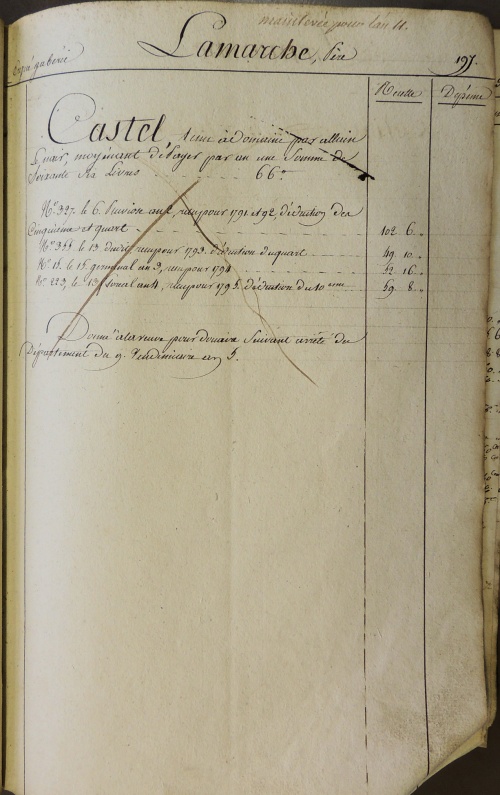 mainlevée pour l'an 11.
Lamarche, Père
197.
Recette Dépense
Castel, tenu à domaine par allain
Le nair, moyennant débayer par an une Somme de
Soixante Six Livres 66"
N.o 327. le 6. Pluviose an 2, reçu pour 1791 et 92, déduction des
Cinquieme et quart 102 6 "
N.o 355 le 13 reçu pour 1793. déduction du quart 49. 10 "
N.o 15. le 15 germinal an 3, reçu pour 1794 52 16 "
N.o 223, le 13 floreal an 4, reçu pour 1795, déduction du 10.eme 59. 8 "
Donné à la veuve pour douaire Suivant arrêté du
Département du 9. Vendémiaire an 5.